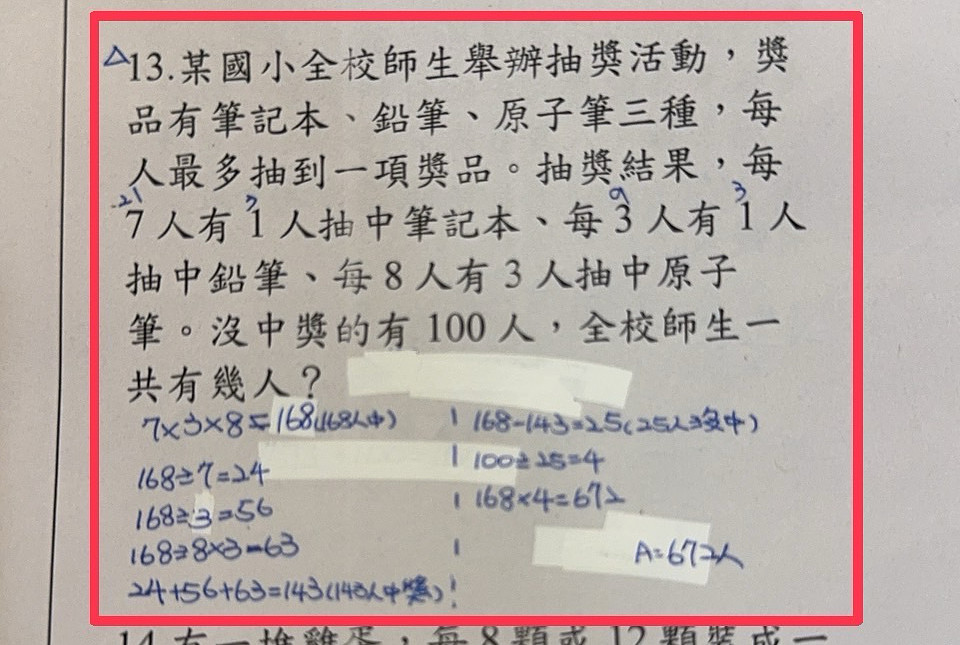 △13.某國小全校師生舉辦抽獎活動，獎
品有筆記本、鉛筆、原子筆三種，每
人最多抽到一項獎品。抽獎結果，每
21 3 9 3
7人有1人抽中筆記本、每3人有1人
抽中鉛筆、每8人有3人抽中原子
筆。沒中獎的有100人，全校師生一
共有幾人？
7×3×8=168(168人中)
168÷7=24
168÷3=56
168÷8×3=63
24+56+63=143(143人中獎)
168-143=25(25人沒中)
100÷25=4
168×4=672
A=672人
14.有一堆雞蛋，每8顆或12顆裝成一